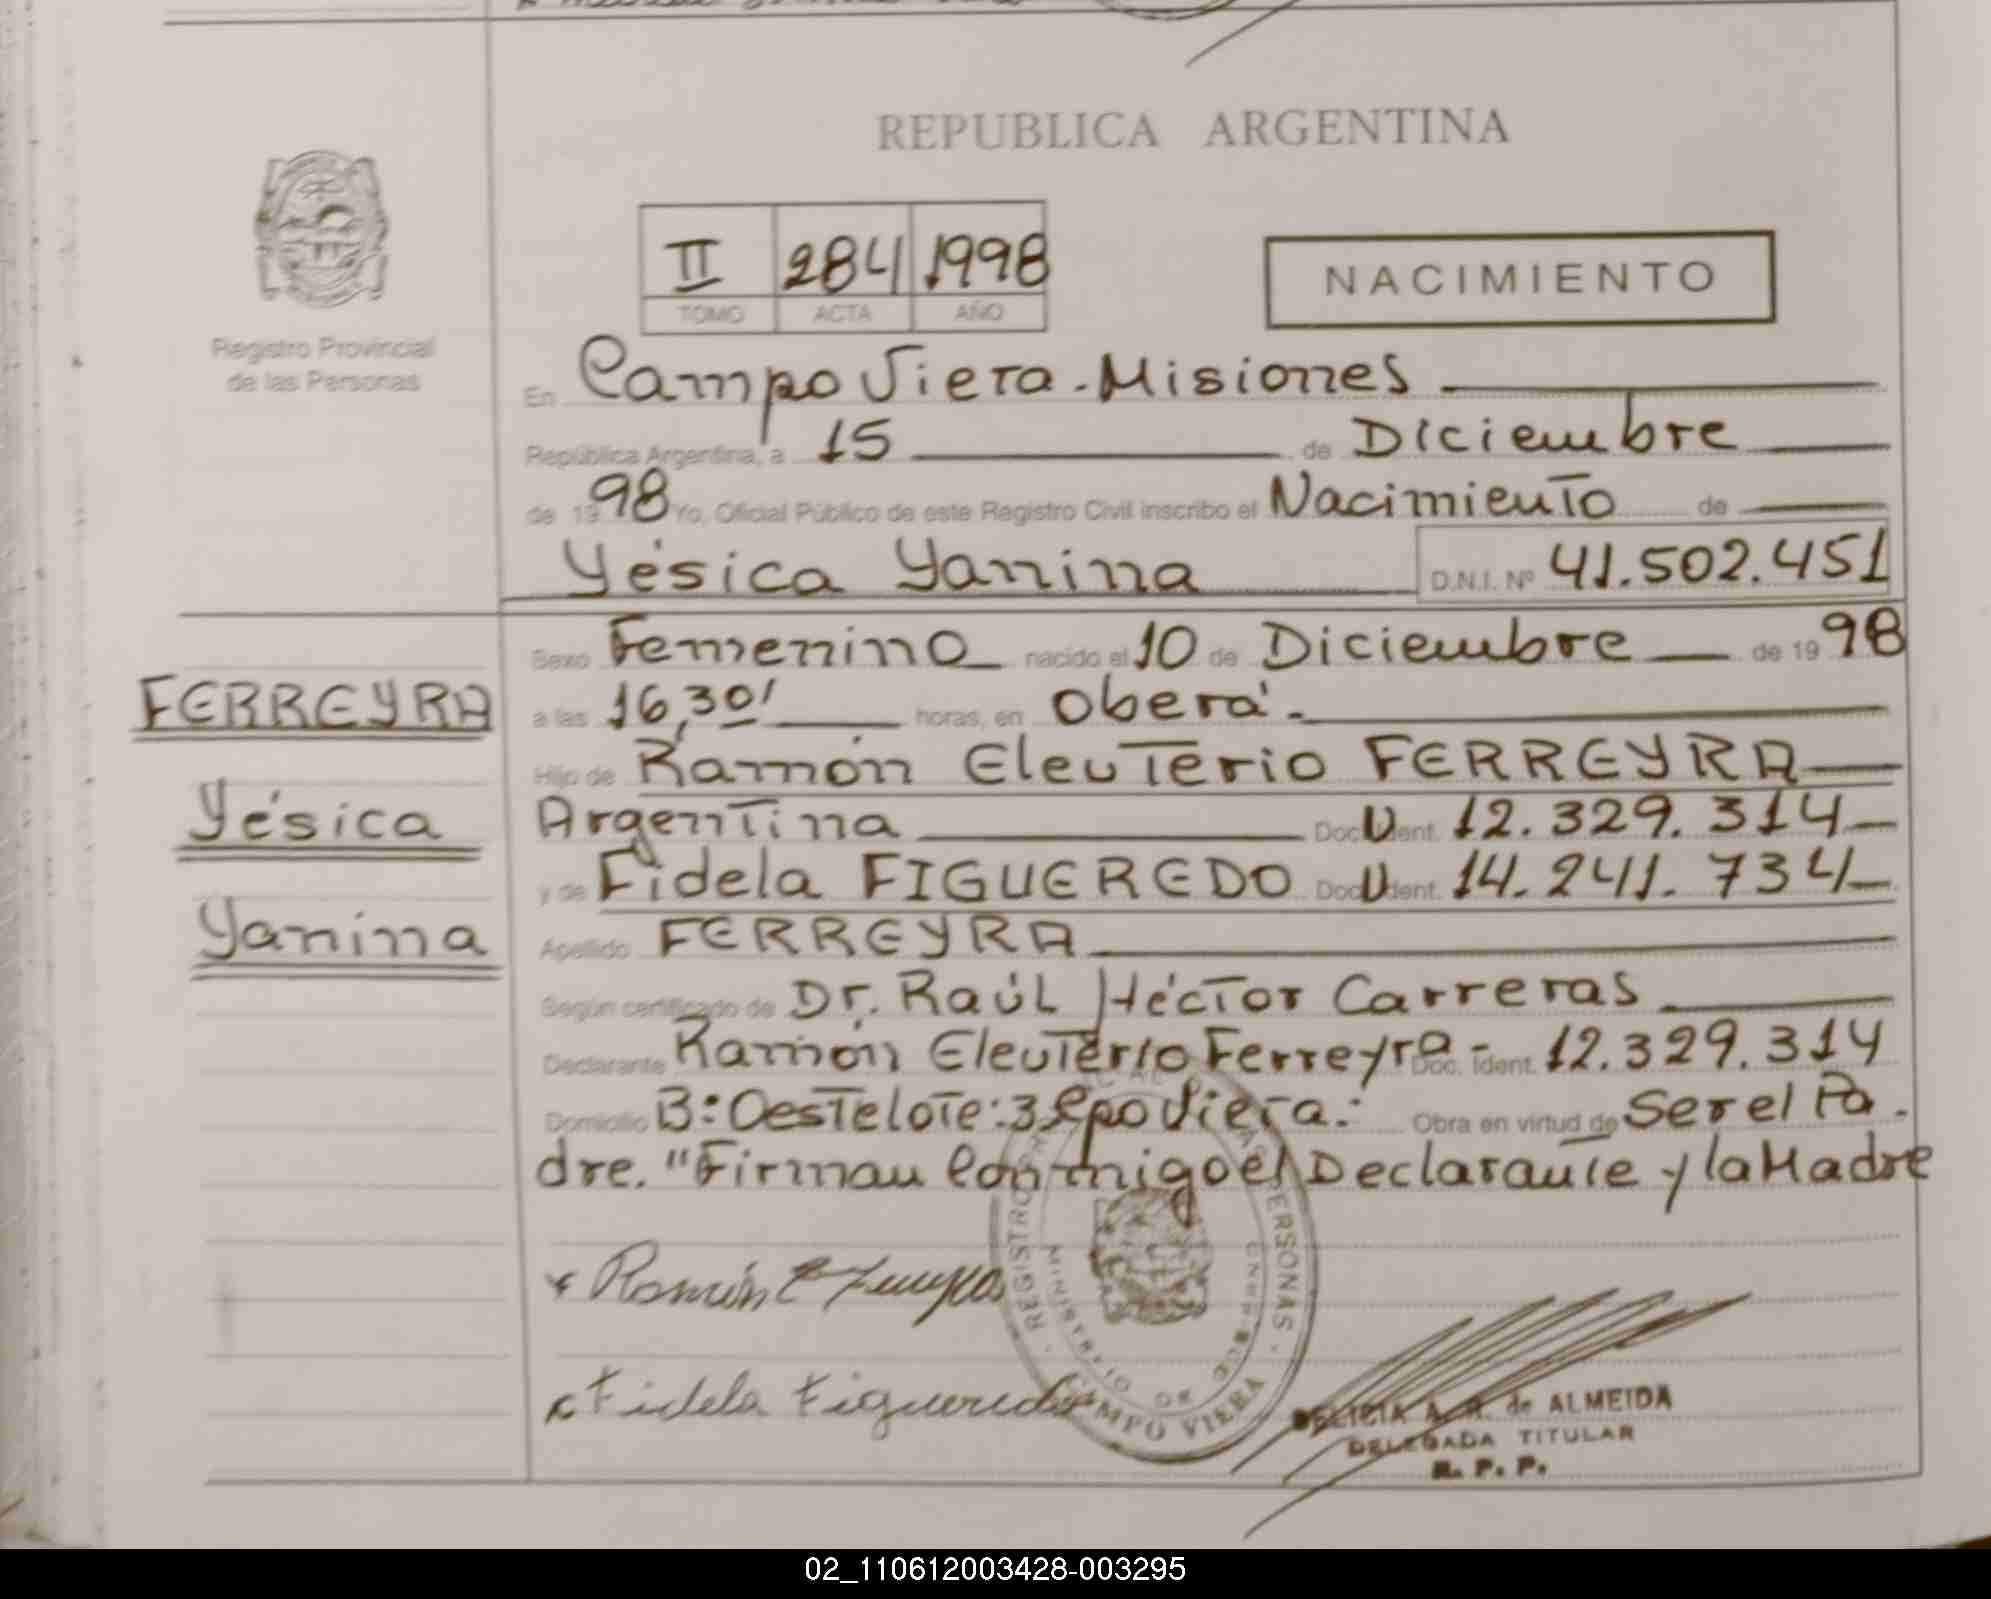 REPUBLICA ARGENTINA
II 284 1998
TOMO ACTA AÑO
NACIMIENTO
Registro Provincial
de las Personas
En Campo Viera - Misiones
República Argentina, a 15 de Diciembre
de 1998 Yo, Oficial Público de este Registro Civil inscribo el Nacimiento de
Yésica Yanina D.N.I. Nº 41.502.451
Sexo Femenino nacido el 10 de Diciembre de 1998
FERREYRA
Yésica
Yanina
a las 16,30' horas, en Oberá.
Hijo de Ramón Eleuterio FERREYRA
Argentina Doc. U Ident. 12.329.314
y de Fidela FIGUEREDO Doc. U Ident. 14.241.734
Apellido FERREYRA
Según certificado de Dr. Raúl Héctor Carreras
Declarante Ramón Eleuterio Ferreyra - Doc. Ident. 12.329.314
Domicilio B: Oeste lote: 3 Cpo Viera. Obra en virtud de Ser el Pa
dre. "Firman Conmigo el Declarante y la Madre
Ramón E Ferreyra
Fidela Figueredo
REGISTRO PERSONAS
MINISTERIO DE GOBIERNO
CAMPO VIERA
DELICIA A. R. de ALMEIDA
DELEGADA TITULAR
R. P. P.
02_110612003428-003295